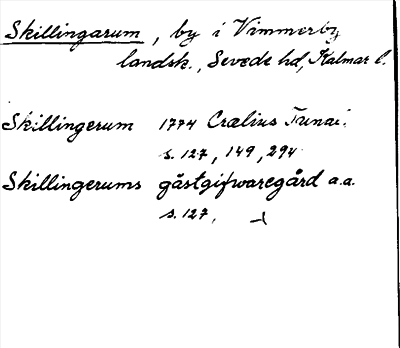 Skillingarum, by i Vimmerby
landsk., Sevede hd, Kalmar l.
Skillingerum 1774 Crælius Tunai.
s. 127, 149, 294
Skillingerums gästgifwaregård a.a.
s. 127.